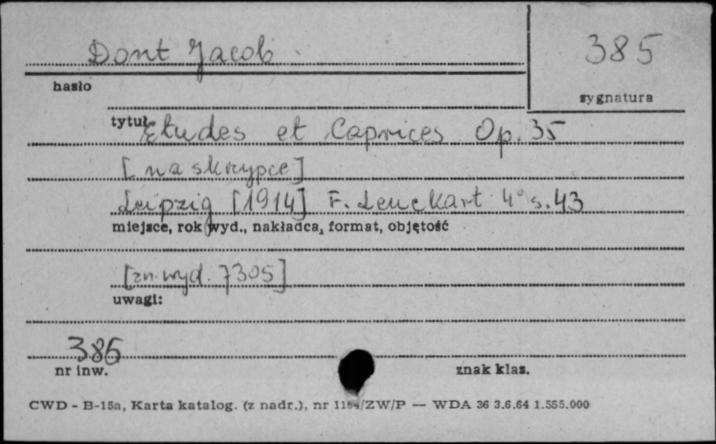 Dont Jacob
385
hasło
sygnatura
tytuł Etudes et Caprices Op. 35
[na skrzypce]
Leipzig [1914] F. Leuckart 4° s. 43
miejsce, rok wyd., nakładca, format, objętość
[zn. wyd. 7305]
uwagi:
385
nr inw.
znak klas.
CWD - B-15a, Karta katalog. (z nadr.), nr /ZW/P — WDA 36 3.6.64 1.555.000